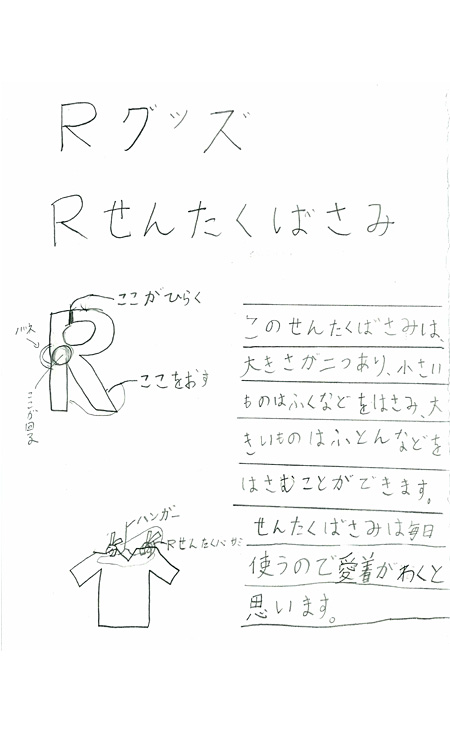 Rグッズ
Rせんたくばさみ
ここがひらく
バネ
ここをおす
ここが回る
ハンガー
Rせんたくバサミ
このせんたくばさみは、
大きさが二つあり、小さい
ものはふくなどをはさみ、大
きいものはふとんなどを
はさむことができます。
せんたくばさみは毎日
使うので愛着がわくと
思います。